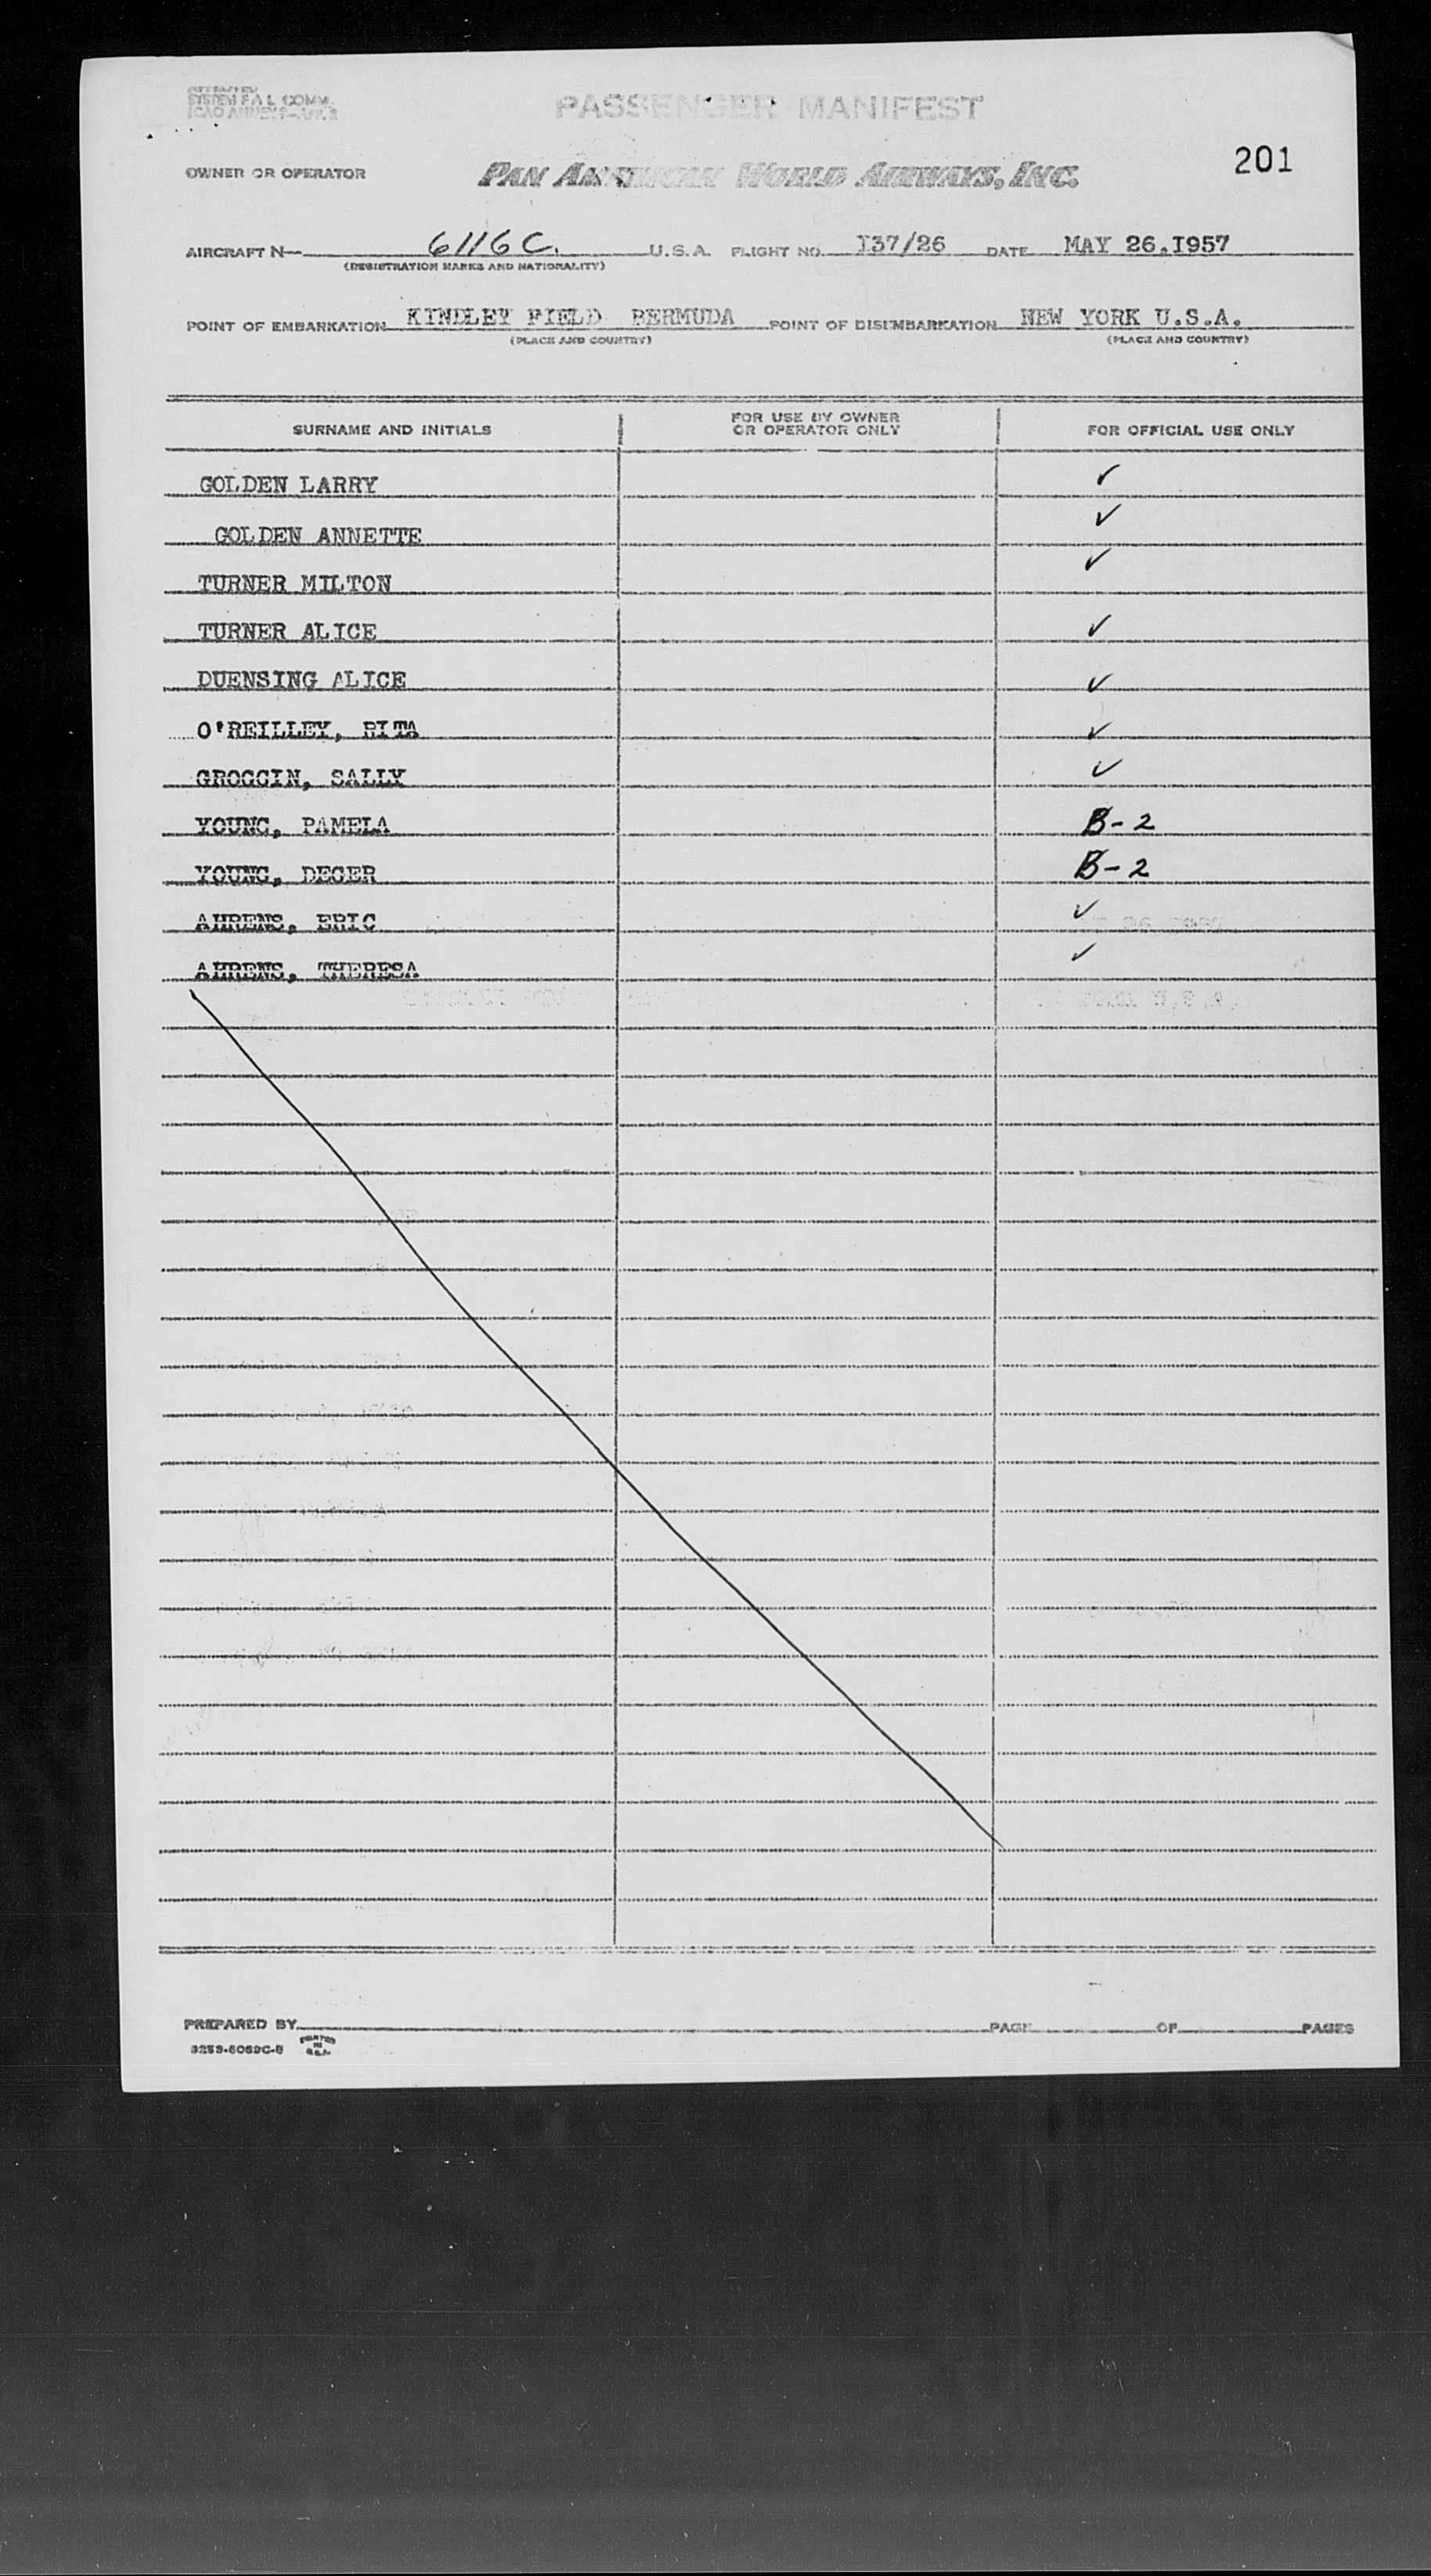 SYSTEM F.A.L. COMM.
PASSENGER MANIFEST
201
OWNER OR OPERATOR PAN AMERICAN WORLD AIRWAYS, INC.
AIRCRAFT N— 6116C. U.S.A. FLIGHT NO. I37/26 DATE MAY 26,I957
(REGISTRATION MARKS AND NATIONALITY)
POINT OF EMBARKATION KINDLEY FIELD BERMUDA POINT OF DISEMBARKATION NEW YORK U.S.A.
(PLACE AND COUNTRY) (PLACE AND COUNTRY)
SURNAME AND INITIALS FOR USE BY OWNER OR OPERATOR ONLY FOR OFFICIAL USE ONLY
GOLDEN LARRY ✓
GOLDEN ANNETTE ✓
TURNER MILTON ✓
TURNER ALICE ✓
DUENSING ALICE ✓
O'REILLEY, RITA ✓
GROGGIN, SALLY ✓
YOUNG, PAMELA B-2
YOUNG, DEGER B-2
AHRENS, ERIC ✓
AHRENS, THERESA ✓
PREPARED BY PAGE OF PAGES
PRINTED IN U.S.A.